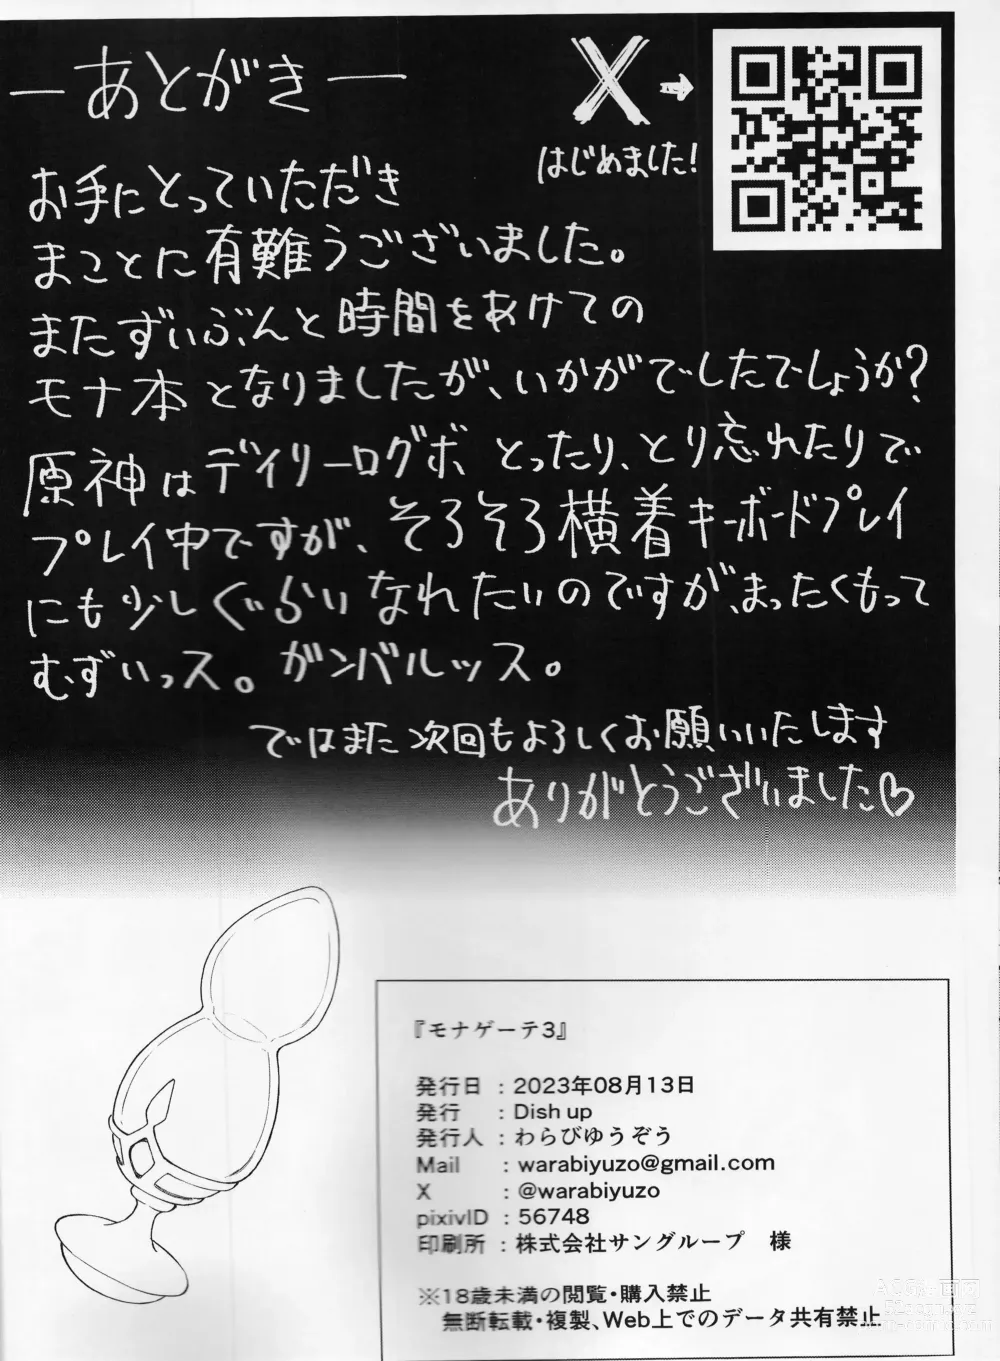 ーあとがきー
X→
はじめました!
お手にとっていただき
まことに有難うございました。
またずいぶんと時間をあけての
モナ本となりましたが、いかがでしたでしょうか?
原神はデイリーログボとったり、とり忘れたりで
プレイ中ですが、そろそろ横着キーボードプレイ
にも少しぐらいなれたいのですが、まったくもって
むずいっス。ガンバルッス。
ではまた次回もよろしくお願いいたします
ありがとうございました♡
『モナゲーテ3』
発行日 : 2023年08月13日
発行 : Dish up
発行人 : わらびゆうぞう
Mail : warabiyuzo@gmail.com
X : @warabiyuzo
pixivID : 56748
印刷所 : 株式会社サングループ 様
※18歳未満の閲覧・購入禁止
無断転載・複製、Web上でのデータ共有禁止